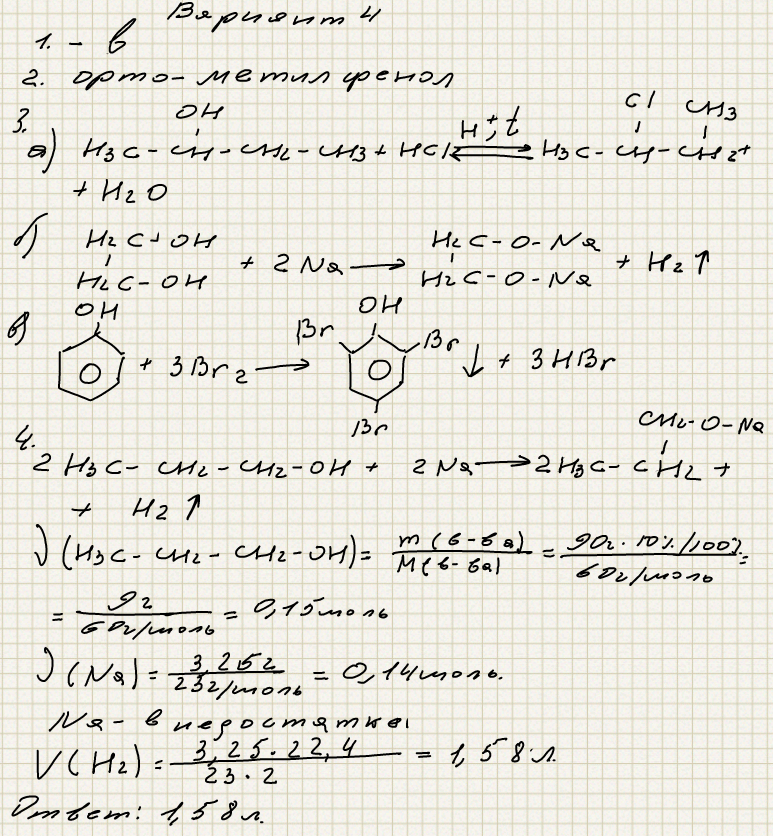 Вариант 4
1. - в
2. орто-метилфенол
3.
OH Cl CH3
а) H3C - CH - CH2 - CH3 + HCl ⇌ H+, t H3C - CH - CH2 +
+ H2O
б) H2C - OH H2C - O - Na
+ 2 Na ⟶ + H2 ↑
H2C - OH H2C - O - Na
OH OH
в) Br Br
+ 3Br2 ⟶ ↓ + 3HBr
Br
4. CH2 - O - Na
2 H3C - CH2 - CH2 - OH + 2Na ⟶ 2H3C - CH2 +
+ H2 ↑
ν (H3C - CH2 - CH2 - OH) = m (в-ва) / M (в-ва) = 90г · 10% / 100% / 60г/моль =
= 9г / 60г/моль = 0,15моль
ν (Na) = 3,25г / 23г/моль = 0,14моль.
Na - в недостатке
V (H2) = 3,25 · 22,4 / 23 · 2 = 1,58 л.
Ответ: 1,58 л.